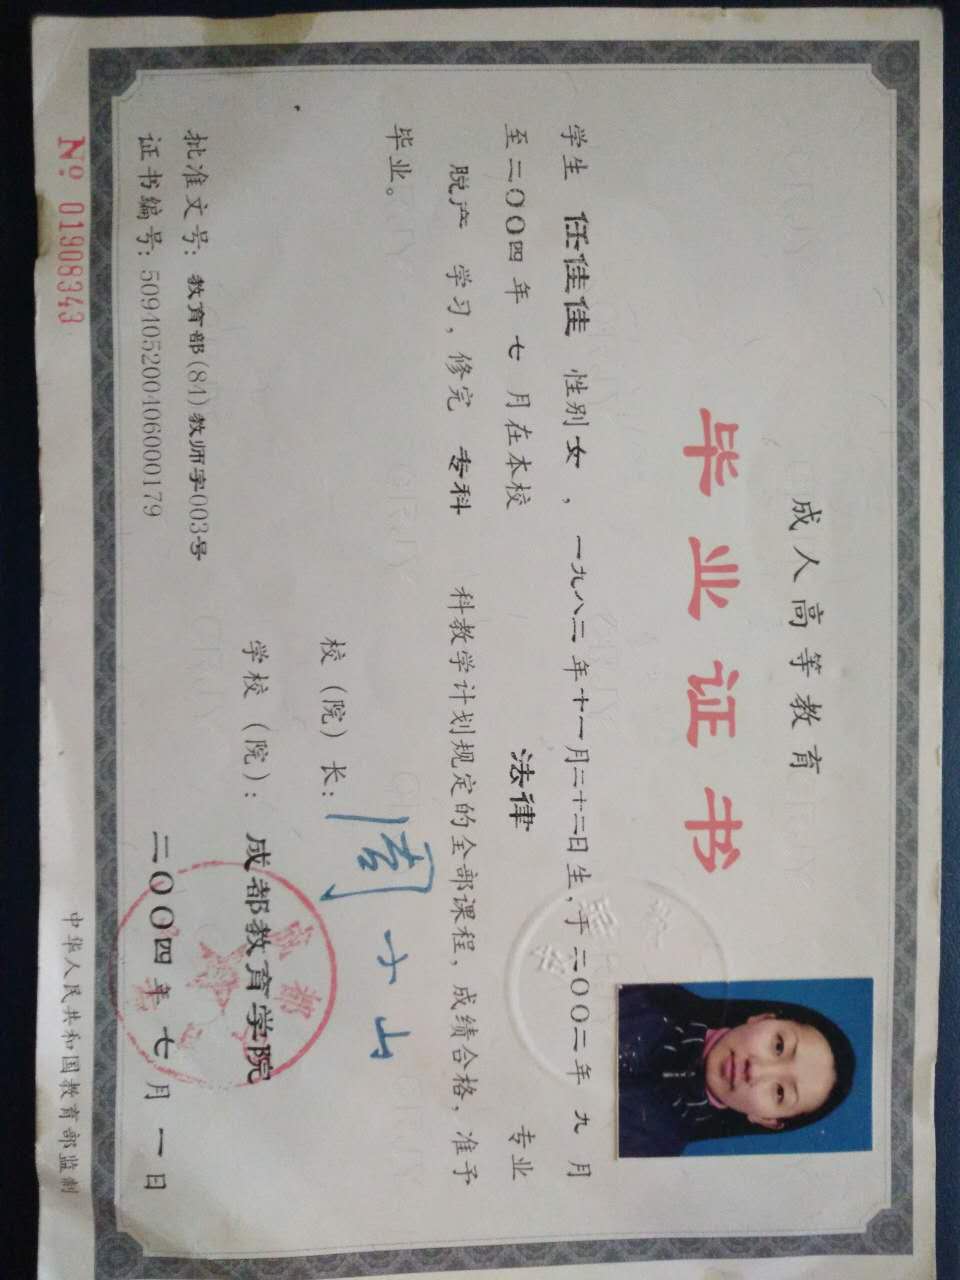 成人高等教育
毕业证书
学生 任佳佳 性别女，一九八二年十一月二十二日生，于二〇〇二年 九 月
至二〇〇四年 七 月在本校 法律 专业
脱产 学习，修完 专科 科教学计划规定的全部课程，成绩合格，准予
毕业。
校（院）长：周小山
学校（院）：成都教育学院
批准文号：教育部(84)教师字003号
证书编号：509405200406000179
二〇〇四年 七 月 一 日
№ 01908343
中华人民共和国教育部监制